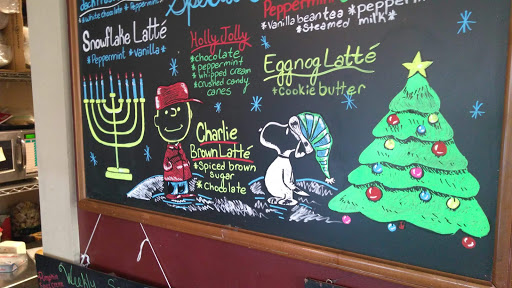 *white chocolate * Peppermint
Special
Snowflake Latté
*Peppermint *vanilla*
Holly Jolly
*chocolate
*peppermint
*whipped cream
*crushed candy
canes
Peppermint
*Vanilla bean tea *peppermint
*Steamed milk*
Eggnog Latté
*Cookie butter*
Charlie
Brown Latté
*Spiced brown
sugar
*Chocolate
Weekly